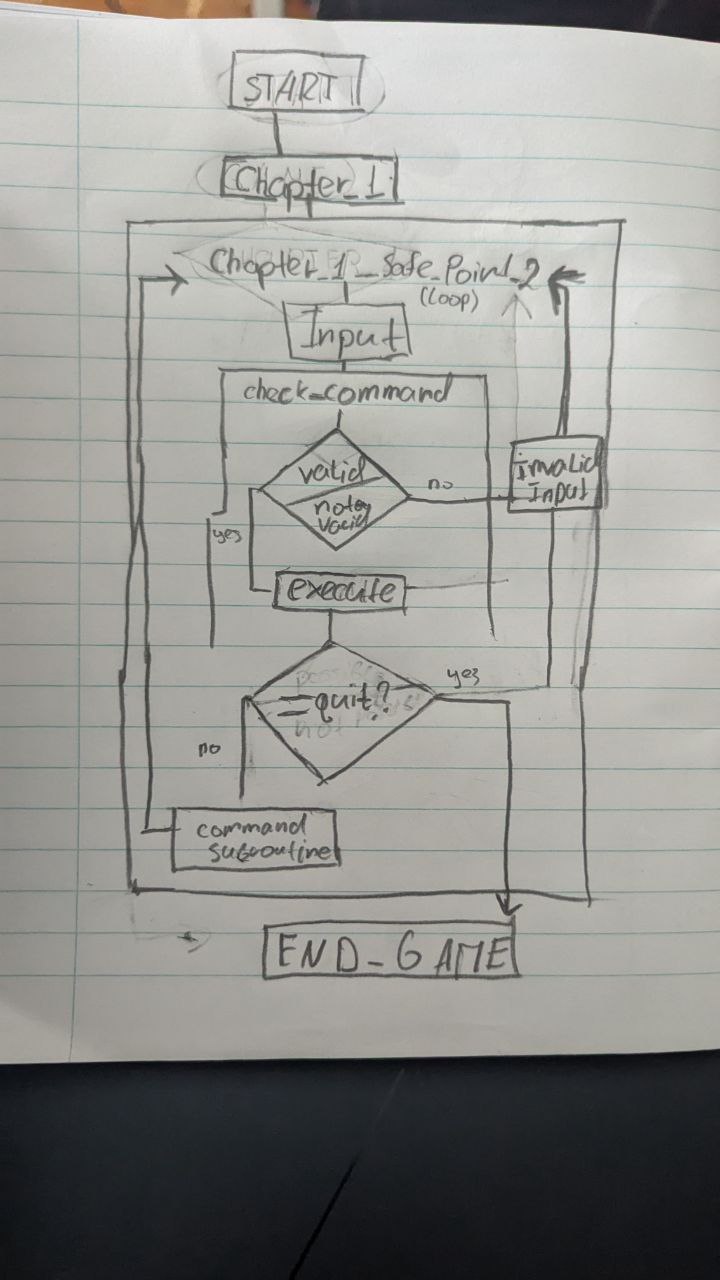 START
Chapter_1
Chapter_1_Safe_Point_2
(Loop)
Input
check_command
valid
no
not
valid
invalid
Input
yes
execute
yes
= quit?
no
command
subroutine
END_GAME